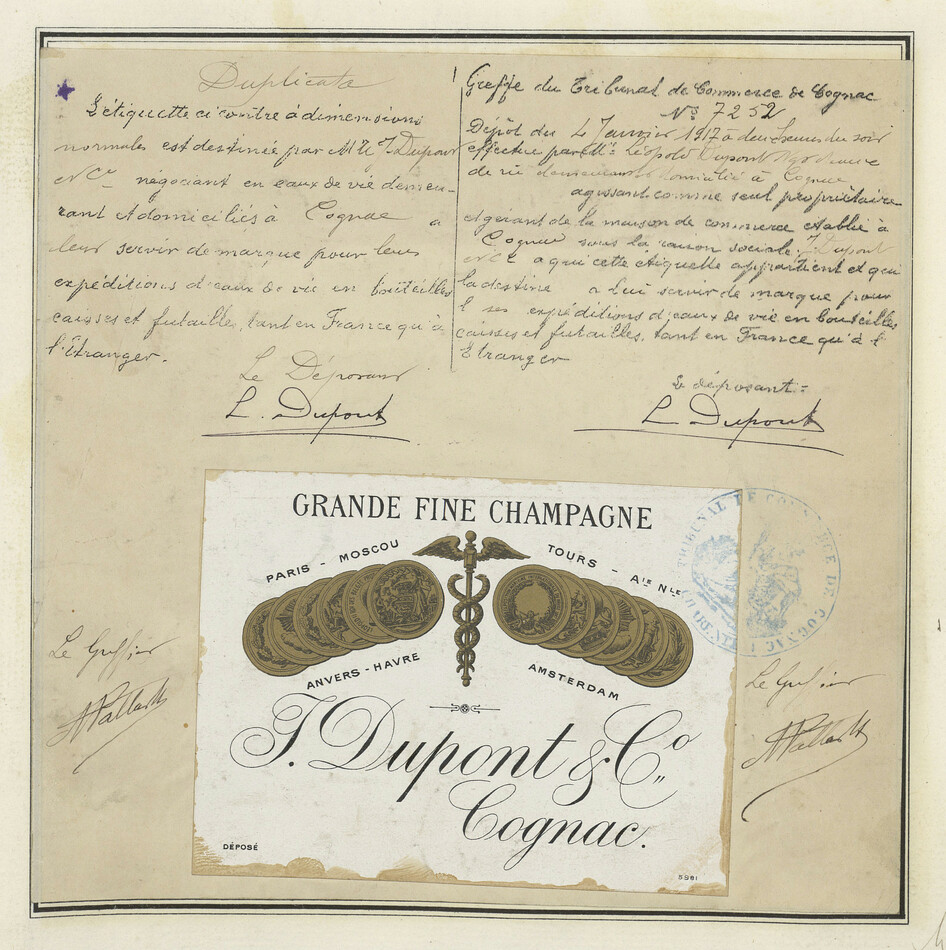 Duplicata
L'étiquette ci contre à dimensions
normales est destinée par MM. J Dupont
& Co négociant en eaux de vie demeu-
rant et domiciliés à Cognac a
leur servir de marque pour leurs
expéditions d'eaux de vie en bouteilles
caisses et futailles, tant en France qu'à
l'Etranger.
Le Déposant
L. Dupont
Greffe du Tribunal de Commerce de Cognac
No 7252
Dépôt du 4 Janvier 1917 à deux heures du soir
effectué par M. Léopold Dupont
de vie demeurant domicilié à Cognac
agissant comme seul propriétaire
et gérant de la maison de commerce établie à
Cognac sous la raison sociale J Dupont
& Co a qui cette étiquette appartient et qui
la destine a lui servir de marque pour
ses expéditions d'eaux de vie en bouteilles
caisses et futailles, tant en France qu'à l'
Etranger
Le déposant =
L Dupont
GRANDE FINE CHAMPAGNE
PARIS - MOSCOU
TOURS - AIE NLE
ANVERS - HAVRE
AMSTERDAM
J. Dupont & Co
Cognac.
DÉPOSÉ
5981
TRIBUNAL DE COMMERCE DE COGNAC
Le Greffier
Le Greffier